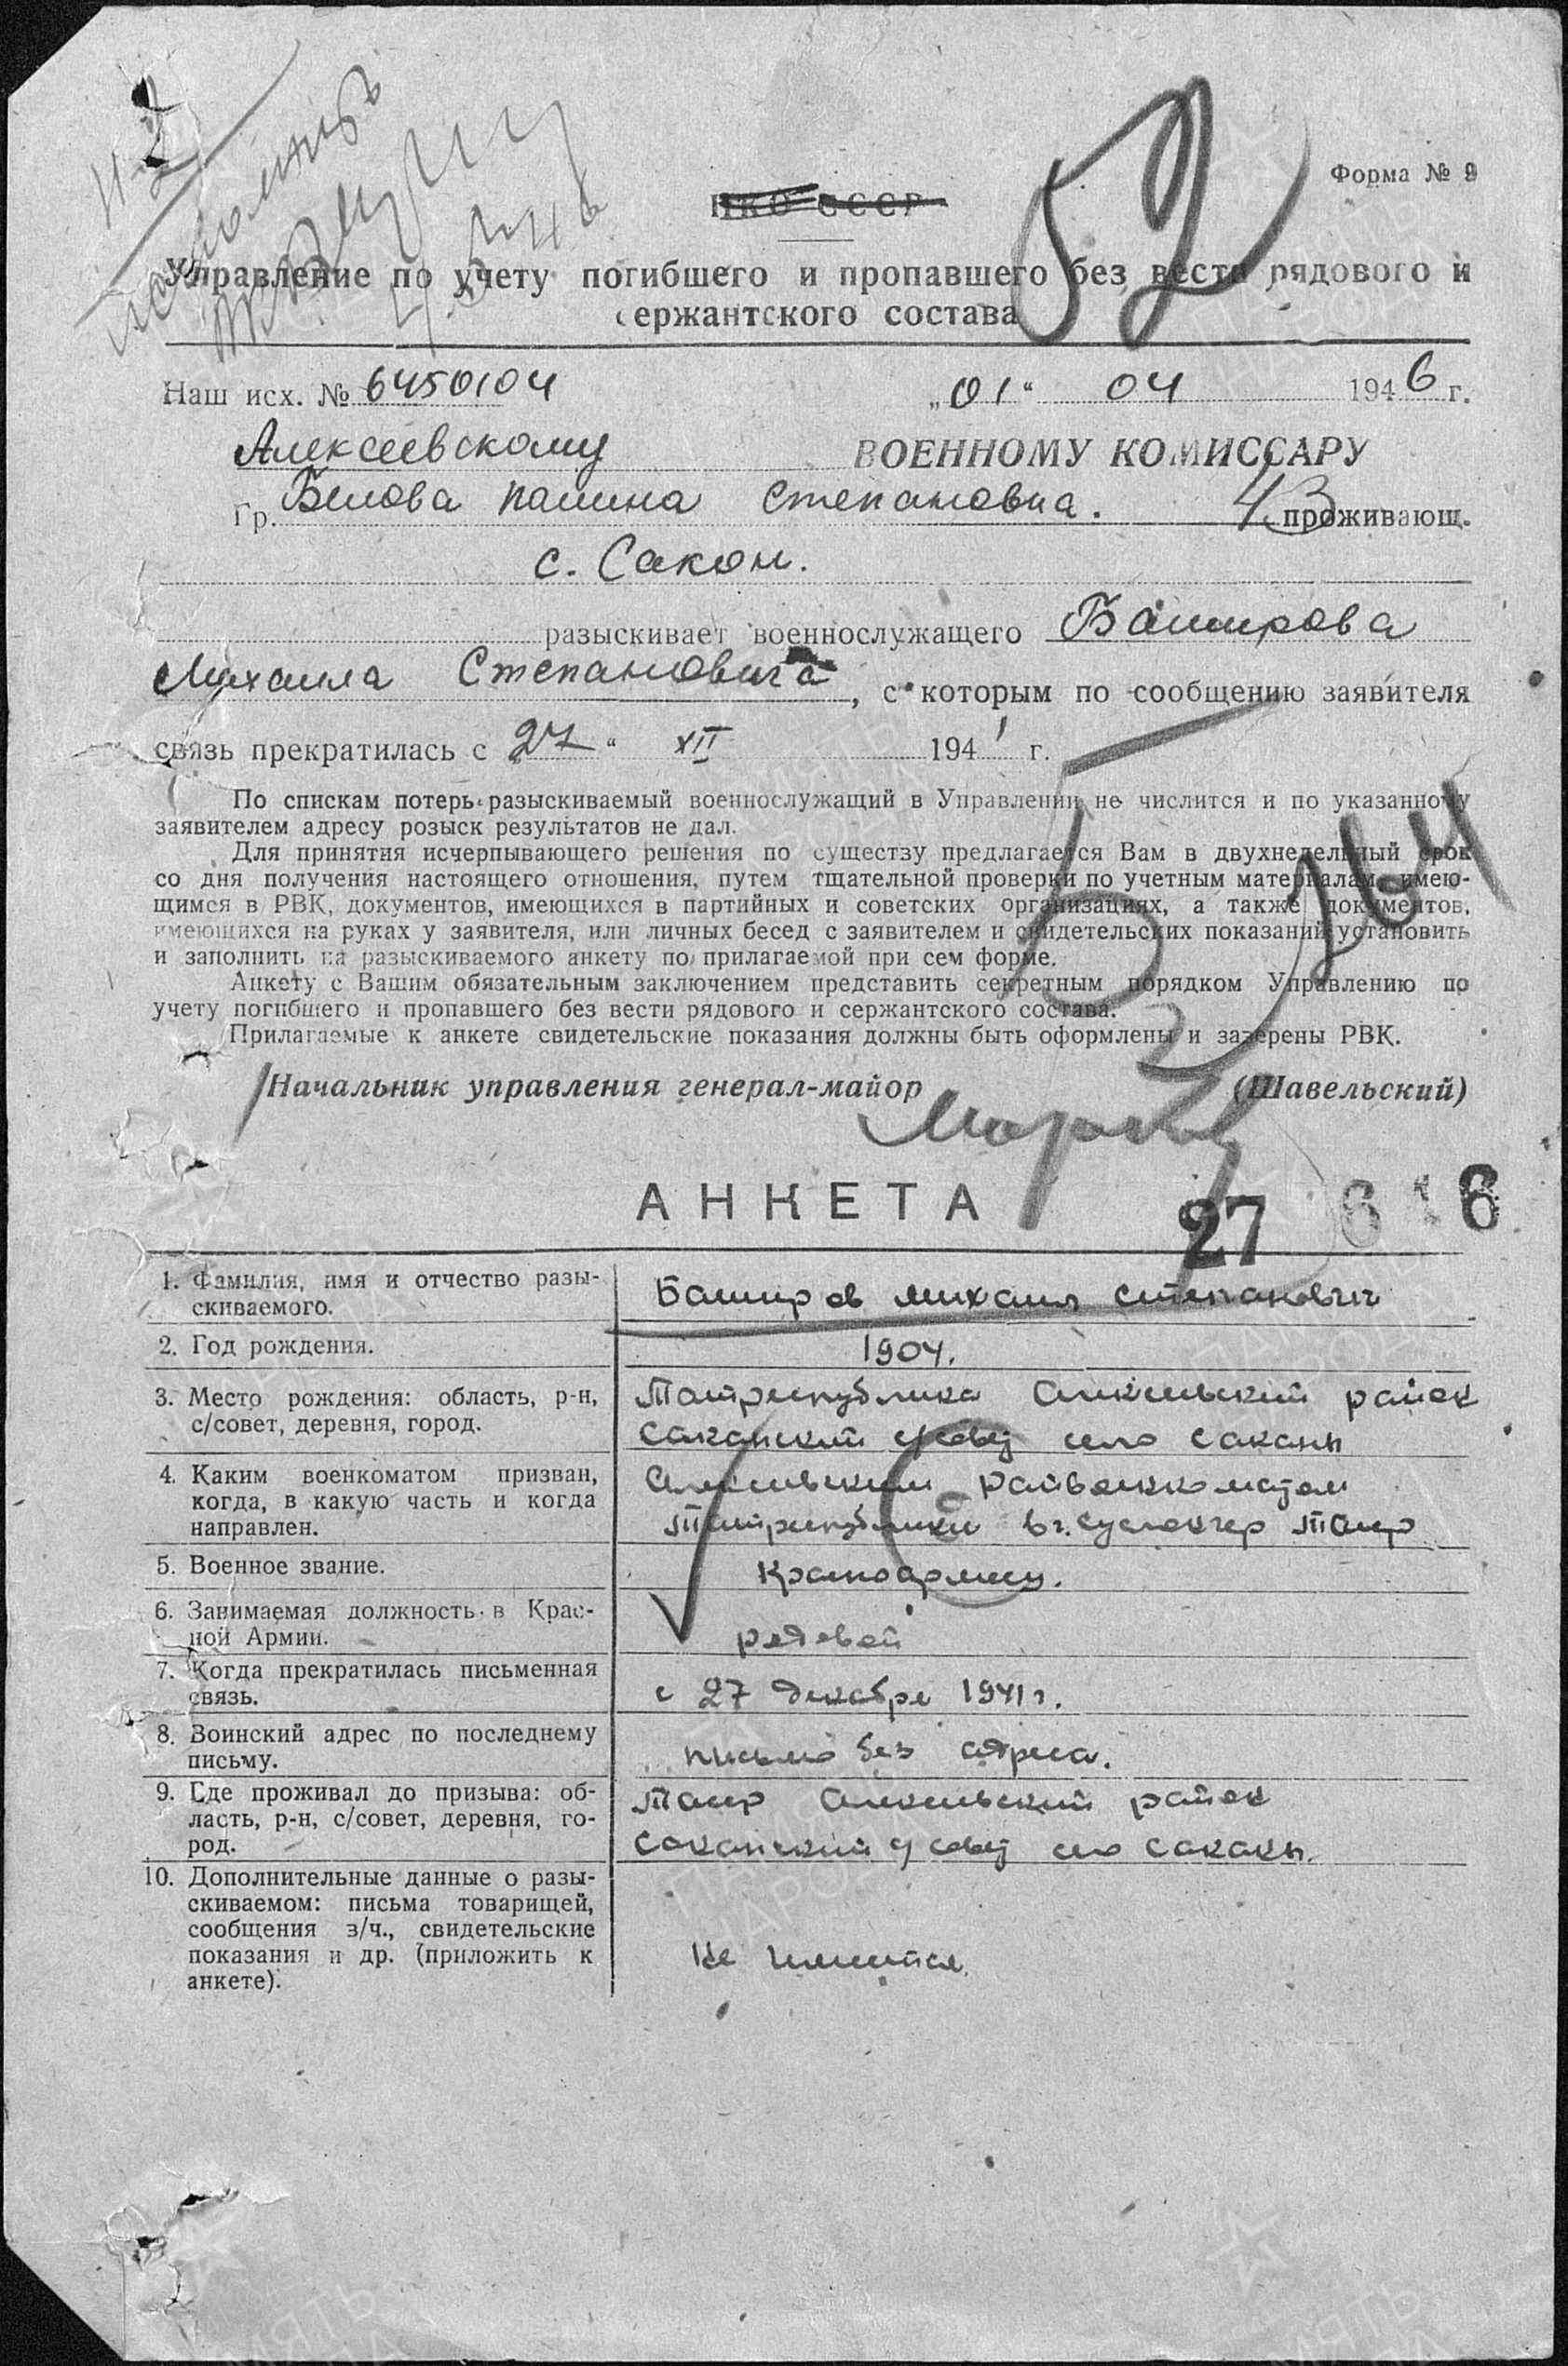 Форма № 9
НКО СССР
52
Управление по учету погибшего и пропавшего без вести рядового и
сержантского состава
Наш исх. № 6450104 „01“ 04 1946 г.
Алексеевскому ВОЕННОМУ КОМИССАРУ
Гр. Белова Полина Степановна. проживающ.
с. Сакон.
разыскивает военнослужащего Баширова
Михаила Степановича, с которым по сообщению заявителя
связь прекратилась с 27 “ XII 1941 г.
По спискам потерь разыскиваемый военнослужащий в Управлении не числится и по указанному
заявителем адресу розыск результатов не дал.
Для принятия исчерпывающего решения по существу предлагается Вам в двухнедельный срок
со дня получения настоящего отношения, путем тщательной проверки по учетным материалам, имею-
щимся в РВК, документов, имеющихся в партийных и советских организациях, а также документов,
имеющихся на руках у заявителя, или личных бесед с заявителем и свидетельских показаний установить
и заполнить на разыскиваемого анкету по прилагаемой при сем форме.
Анкету с Вашим обязательным заключением представить секретным порядком Управлению по
учету погибшего и пропавшего без вести рядового и сержантского состава.
Прилагаемые к анкете свидетельские показания должны быть оформлены и заверены РВК.
Начальник управления генерал-майор (Шавельский)
АНКЕТА
27 6 6
1. Фамилия, имя и отчество разы-
скиваемого.
Баширов Михаил Степанович
2. Год рождения.
1904.
3. Место рождения: область, р-н,
с/совет, деревня, город.
Татреспублика Алексеевский район
Саканский с/совет село Саканы
4. Каким военкоматом призван,
когда, в какую часть и когда
направлен.
Алексеевским Райвоенкоматом
Татреспублики в г.
5. Военное звание.
Красноармеец.
6. Занимаемая должность в Крас-
ной Армии.
рядовой
7. Когда прекратилась письменная
связь.
с 27 декабря 1941 г.
8. Воинский адрес по последнему
письму.
письмо без адреса.
9. Где проживал до призыва: об-
ласть, р-н, с/совет, деревня, го-
род.
Тасср Алексеевский район
Саканский с/совет село Саканы.
10. Дополнительные данные о разы-
скиваемом: письма товарищей,
сообщения з/ч., свидетельские
показания и др. (приложить к
анкете).
Не имеится.